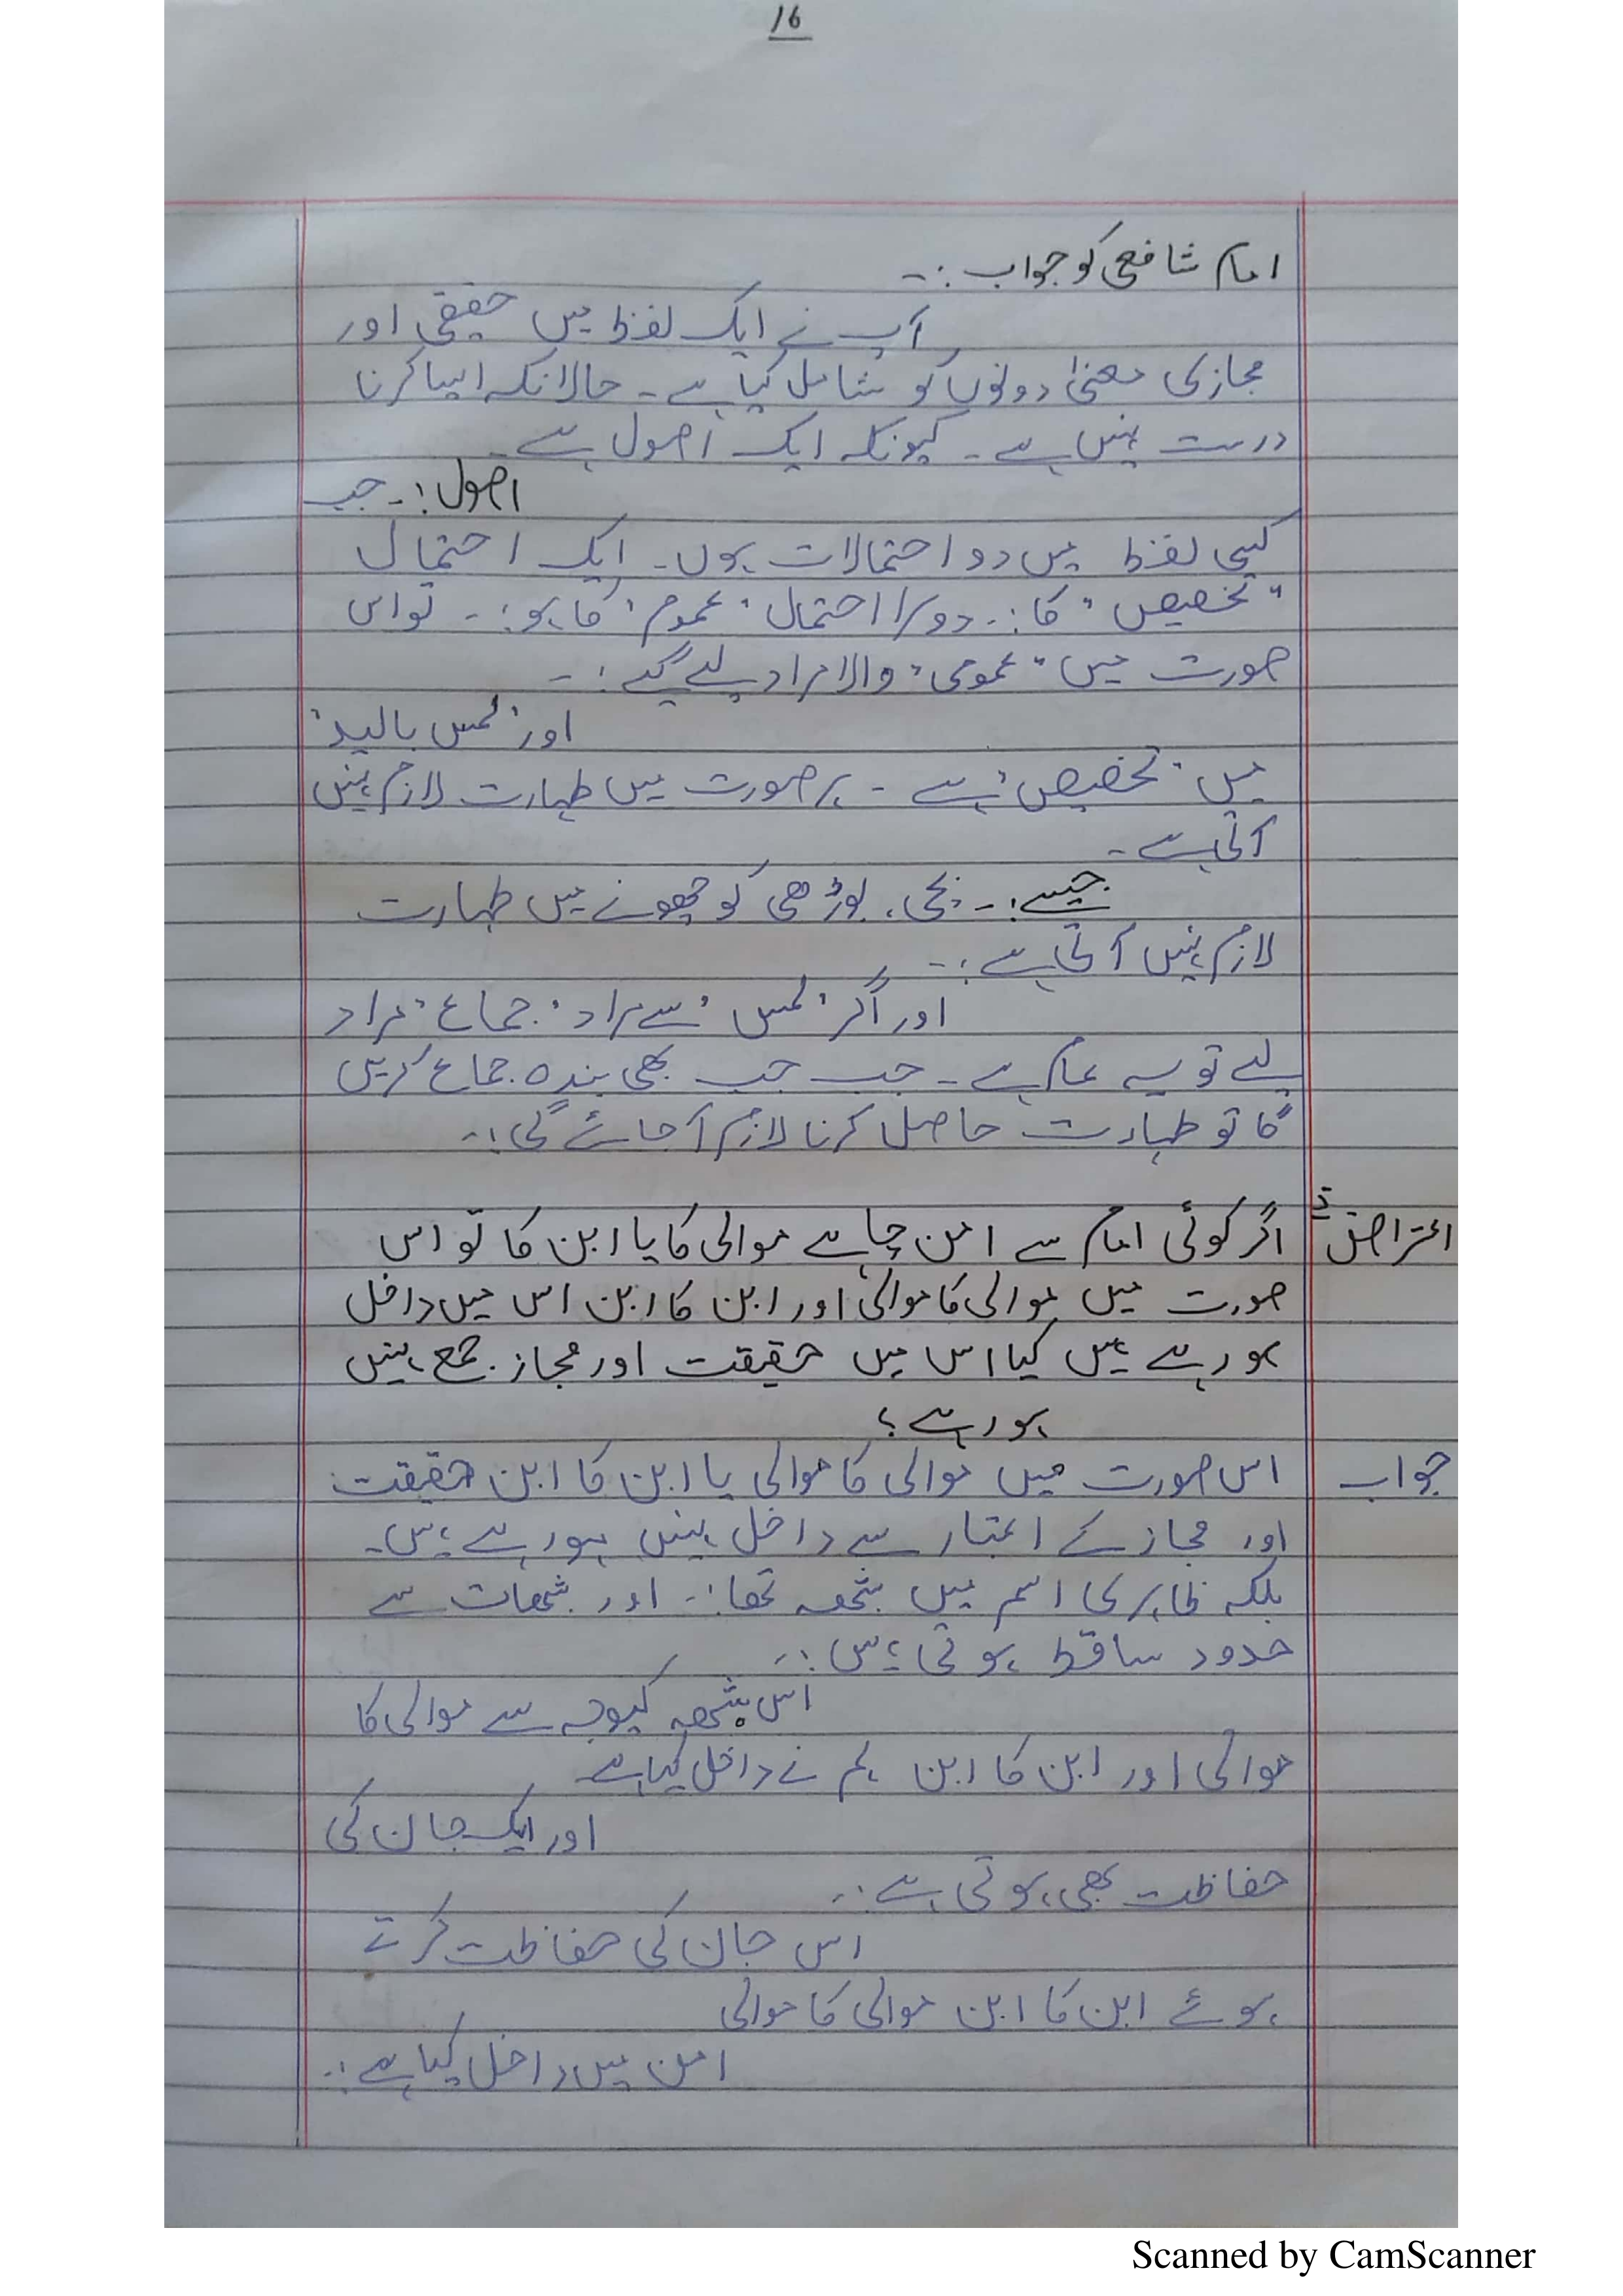 16
امام شافعی کو جواب :۔
آپ نے ایک لفظ میں حقیقی اور
مجازی معنیٰ دونوں کو شامل کیا ہے ۔ حالانکہ ایسا کرنا
درست نہیں ہے ۔ کیونکہ ایک اصول ہے ۔
اصول :۔ جب
کسی لفظ میں دو احتمالات ہوں ۔ ایک احتمال
"تخصیص" کا :۔ دوسرا احتمال 'عموم' کا ہو :۔ تو اس
صورت میں "عمومی" والا مراد لیے گیے :۔
اور 'لمس بالید'
میں 'تخصیص' ہے ۔ ہر صورت میں طہارت لازم نہیں
آتی ہے ۔
جیسے :۔ بچی ، بوڑھی کو چھونے میں طہارت
لازم نہیں آتی ہے :۔
اور اگر 'لمس' سے مراد 'جماع' مراد
لے تو یہ عام ہے ۔ جب جب بھی بندہ جماع کریں
گا تو طہارت حاصل کرنا لازم آ جائے گی :۔
اعتراض اگر کوئی امام سے امن چاہے موالی کا یا ابن کا تو اس
صورت میں موالی کا موالی اور ابن کا ابن اس میں داخل
ہو رہے ہیں کیا اس میں حقیقت اور مجاز جمع نہیں
ہو رہے ؟
جواب اس صورت میں موالی کا موالی یا ابن کا ابن حقیقت
اور مجاز کے اعتبار سے داخل نہیں ہو رہے ہیں ۔
بلکہ ظاہری اسم میں شبھہ تھا :۔ اور شبھات سے
حدود ساقط ہوتی ہیں :۔
اس شبھہ کیوجہ سے موالی کا
موالی اور ابن کا ابن ہم نے داخل کیا ہے
اور ایک جان کی
حفاظت بھی ہوتی ہے :۔
اس جان کی حفاظت کرتے
ہوئے ابن کا ابن موالی کا موالی
امن میں داخل کیا ہے :۔
Scanned by CamScanner